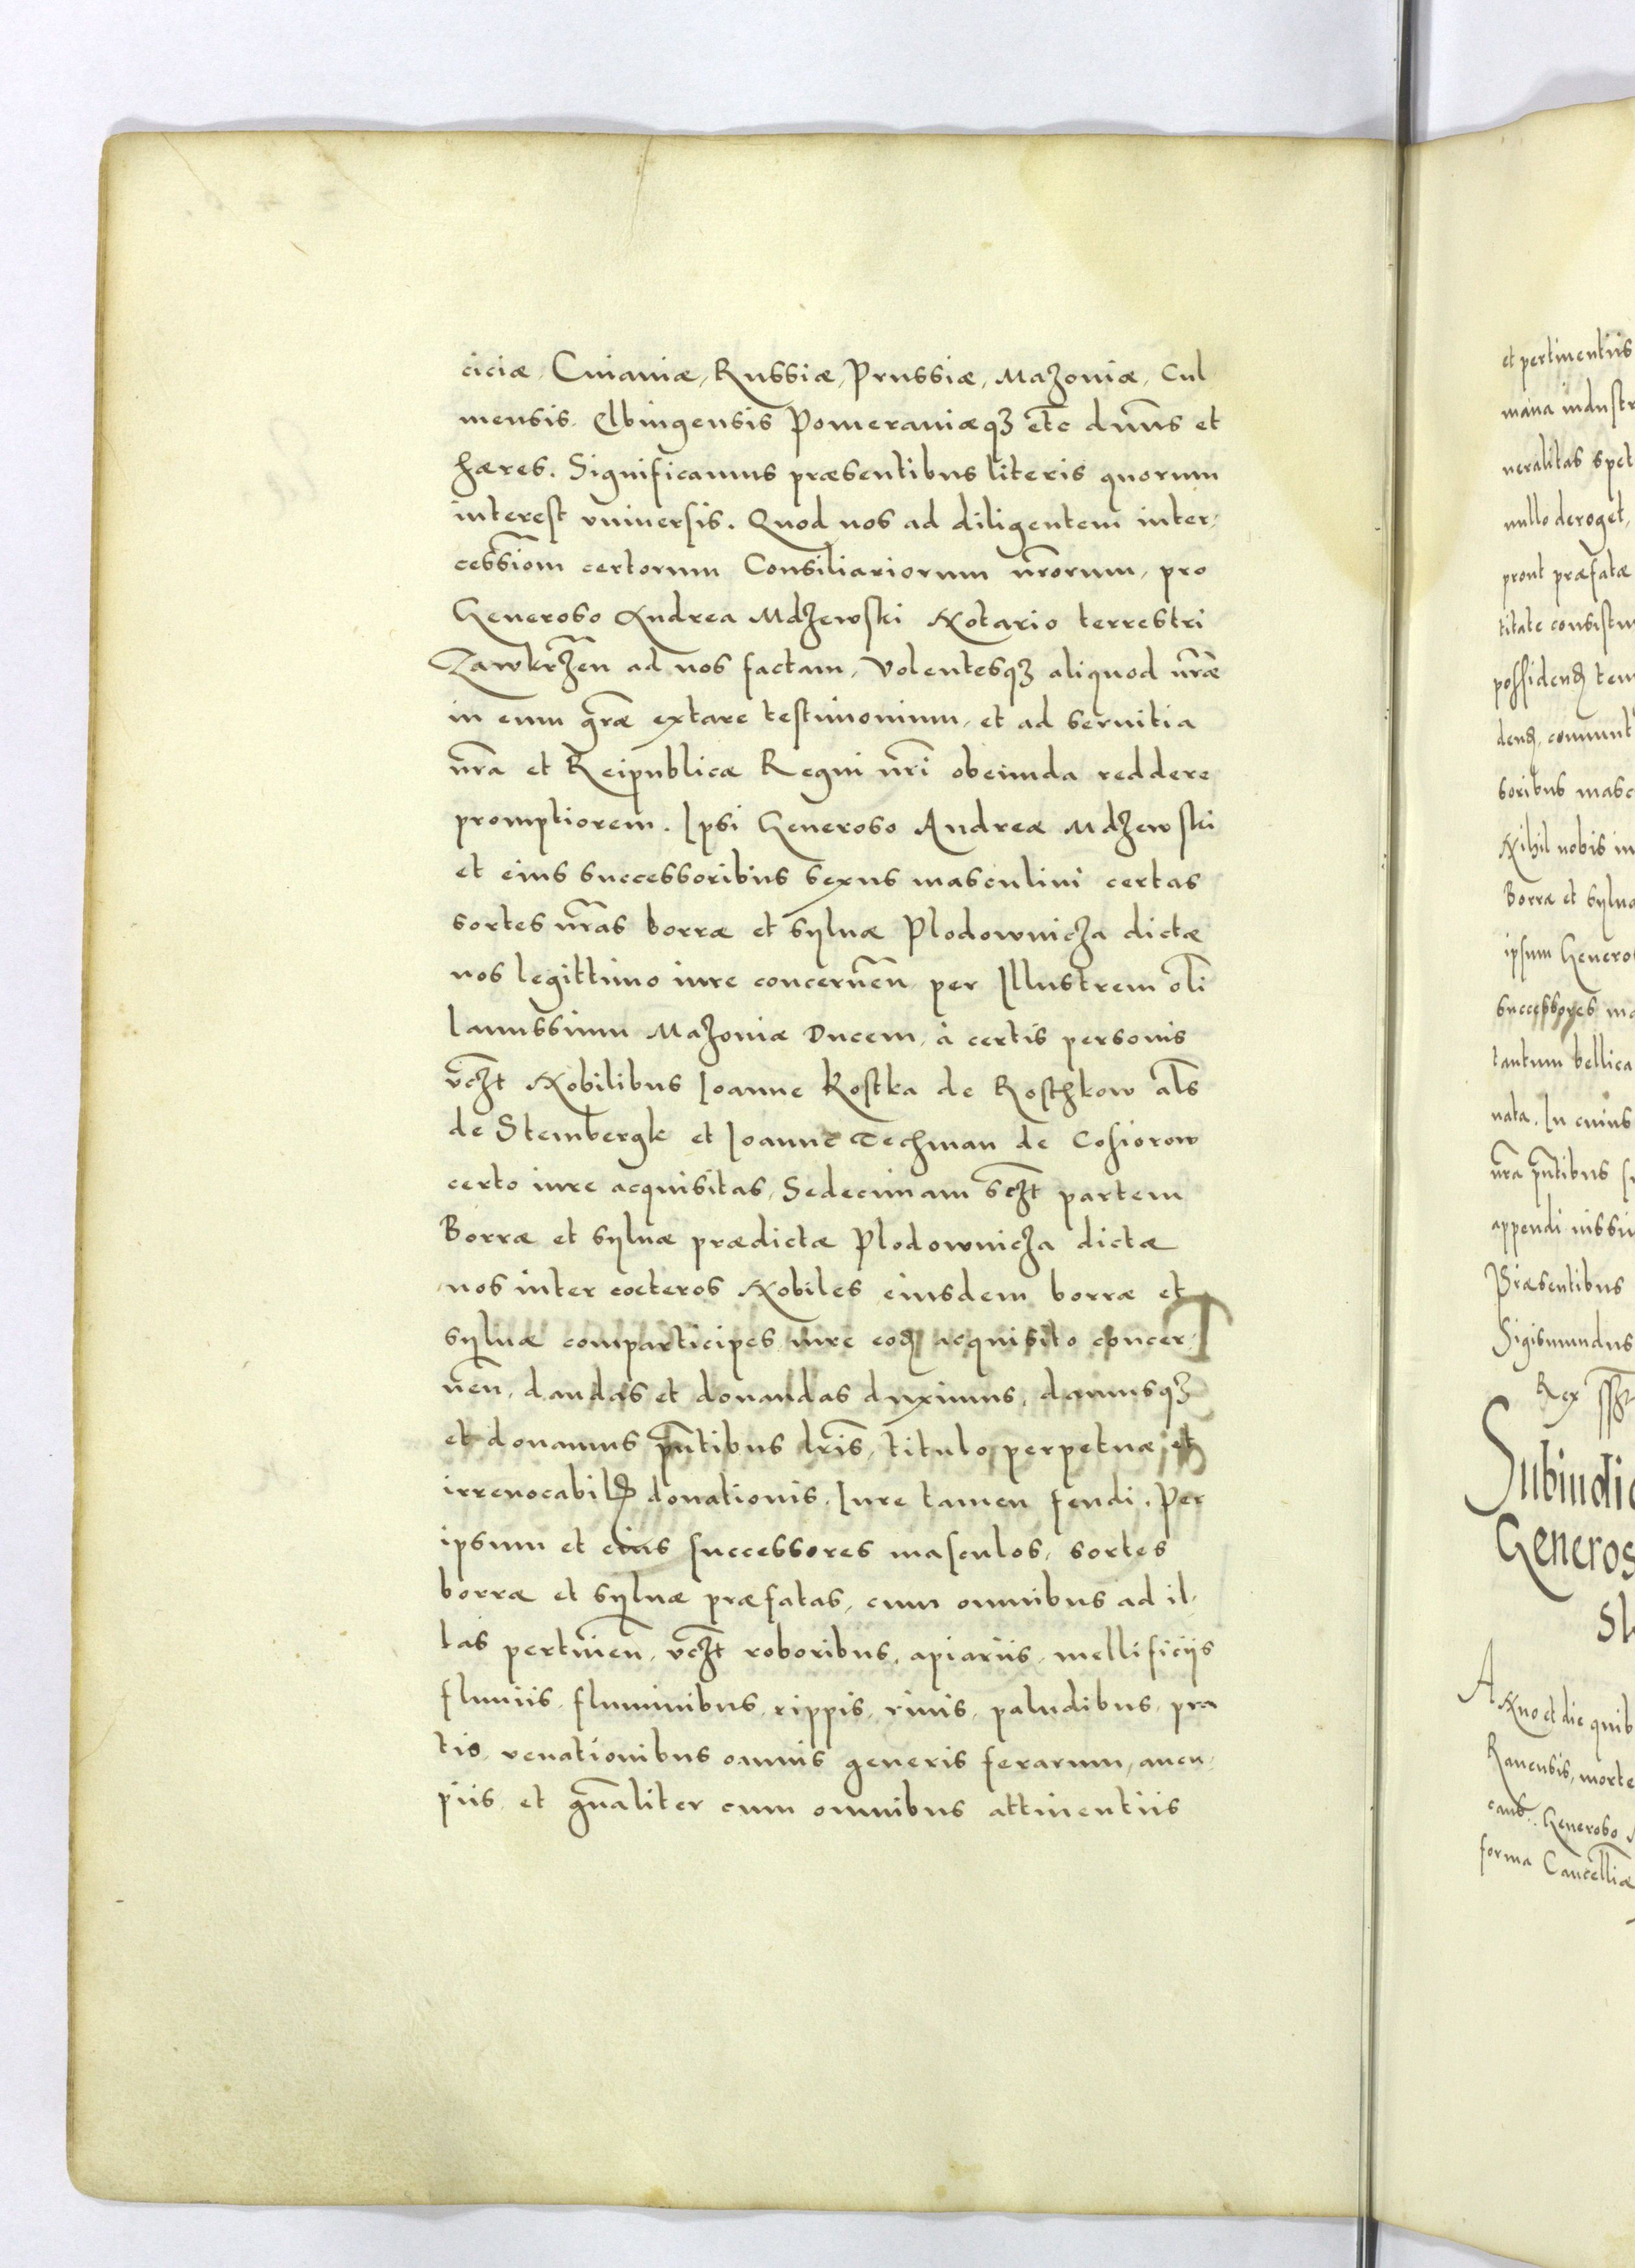 ciciæ, Cuiauiæ, Russiæ, Prussiæ, Mazouiæ, Cul
mensis. Elbingensis Pomeraniæqȝ etc̃ dnñs et
hæres. Significamus præsentibus literis quorum
interest vniuersis. Quod nos ad diligentem inter,
cessiom̃ certorum Consiliariorum nr̃orum, pro
Generoso Andrea Mdzewski Notario terrestri
Zawkrzeñ ad nos factam, Volentesqȝ aliquod nr̃æ
in eum gr̃æ extare testimonium, et ad seruitia
nr̃a et Reipublicæ Regni nr̃i obeunda reddere
promptiorem. Ipsi Generoso Andreæ Mdzewski
et eius successoribus sexus masculini certas
sortes nr̃as borræ et syluæ Plodownicza dictæ
nos legittimo iure concerneñ per Illustrem oli
Ianussium Mazouiæ Ducem, à certis personis
vcz̃t Nobilibus Ioanne Kostka de Rosthkow al̃s
de Stembergk et Ioanne Techman de Cosiorow
certo iure acquisitas, Sedecimam scz̃t partem
Borræ et syluæ prædictæ Plodownicza dictæ
nos inter cœteros Nobiles eiusdem borræ et
syluæ comparticipes iure eod acquisito concer,
neñ, dandas et donandas duximus, damusqȝ
et donamus pñtibus lr̃is, titulo perpetuæ et
irreuocabilis donationis. Iure tamen feudi. Per
ipsum et eius successores masculos, sortes
borræ et syluæ præfatas, cum omnibus ad il,
las pertineñ, vcz̃t roboribus, apiariis, mellificiis
fluuiis, fluminibus, rippis, riuis, paludibus, pra
tis, venationibus omnis generis ferarum, aucu,
piis, et gñaliter cum omnibus attinentiis
et pertinentiis
nullo deroget,
prout præfatæ
Nihil nobis in
Borræ et sylua
ipsum Genero
successores ma
tantum bellica
nata. In cuius
nr̃a pñtibus
Præsentibus
Sigismundus
Rex
Subiudic
Generos
Anno et die quib
Rauensis, morte
Generoso
forma Cancelliæ